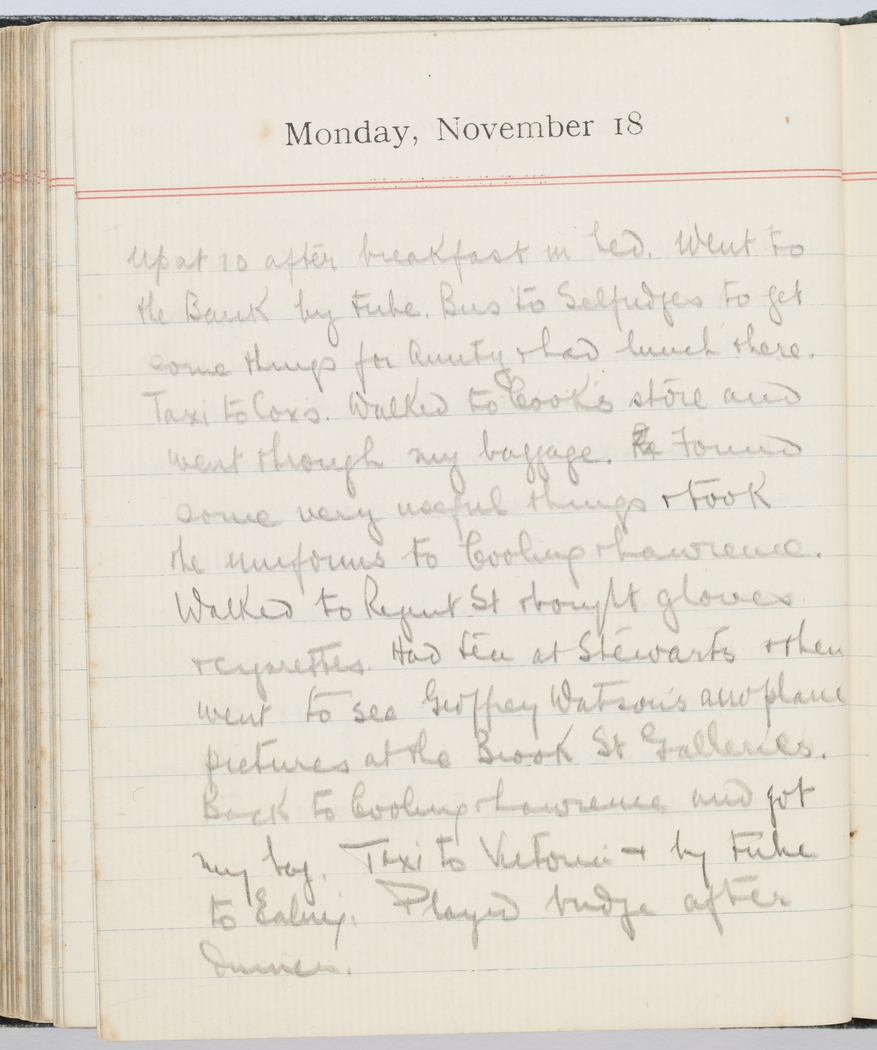 Monday, November 18
Up at 10 after breakfast in bed. Went to
the Bank by tube. Bus to Selfridges to get
some things for Aunty & had lunch there.
Taxi to Coxs. Walked to Cook's store and
went through my baggage. Found
some very useful things & took
the uniforms to Cooling & Lawrence.
Walked to Regent St & bought gloves
& cigarettes. Had tea at Stewarts & then
went to see Geoffrey Watson's aeroplane
pictures at the Brook St Galleries.
Back to Cooling & Lawrence and got
my bag. Taxi to Victoria & by tube
to Ealing. Played bridge after
dinner.